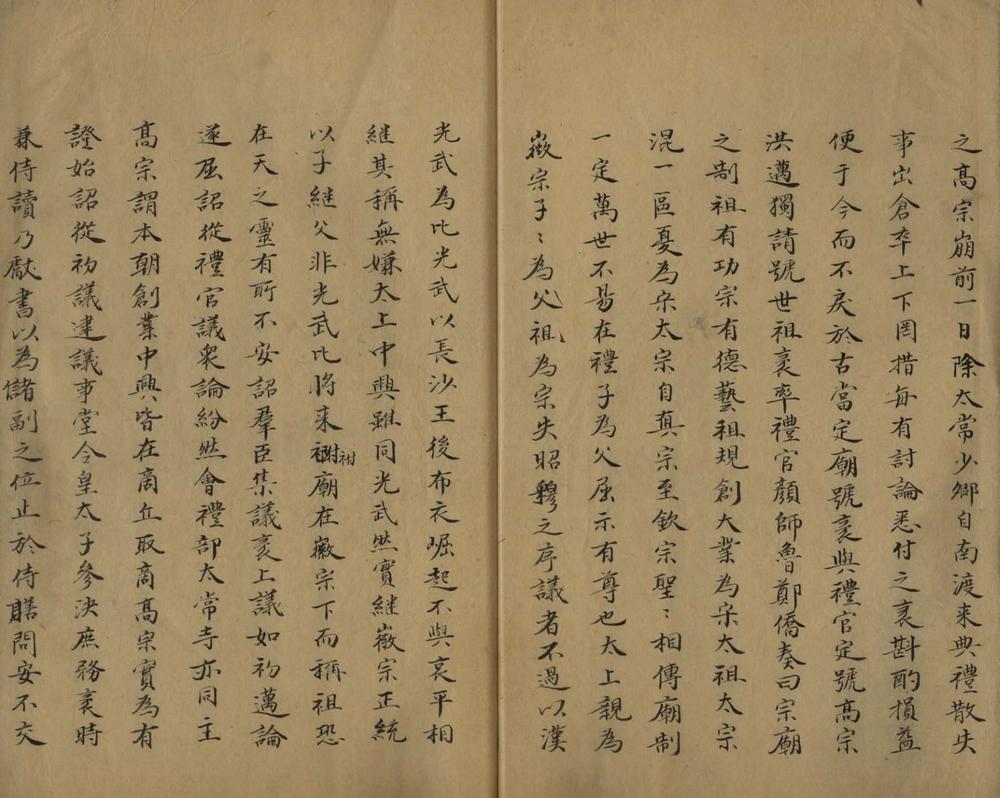 之髙宗崩前一日除太常少卿自南渡来典禮散失
事出倉卒上下罔措每有討論悉付之袤斟酌損益
便于今而不戾於古當定廟號袤與禮官定號髙宗
洪邁獨請號世祖袤率禮官顔師魯鄭僑奏曰宗廟
之制祖有功宗有德藝祖規創大業為宋太祖太宗
混一區夏為宋太宗自真宗至欽宗聖〻相傳廟制
一定萬世不易在禮子為父屈示有尊也太上親為
徽宗子〻為父祖為宗失昭穆之序議者不過以漢
光武為比光武以長沙王後布衣崛起不與哀平相
継其稱無嫌太上中興雖同光武然實継徽宗正統
以子継父非光武比將来祔祔廟在徽宗下而稱祖恐
在天之靈有所不安詔羣臣集議袤上議如初邁論
遂屈詔從禮官議衆論紛然會禮部太常寺亦同主
髙宗謂本朝創業中興皆在商丘取商髙宗實為有
證始詔從初議建議事堂令皇太子參決庶務袤時
兼侍讀乃獻書以為儲副之位止於侍膳問安不交